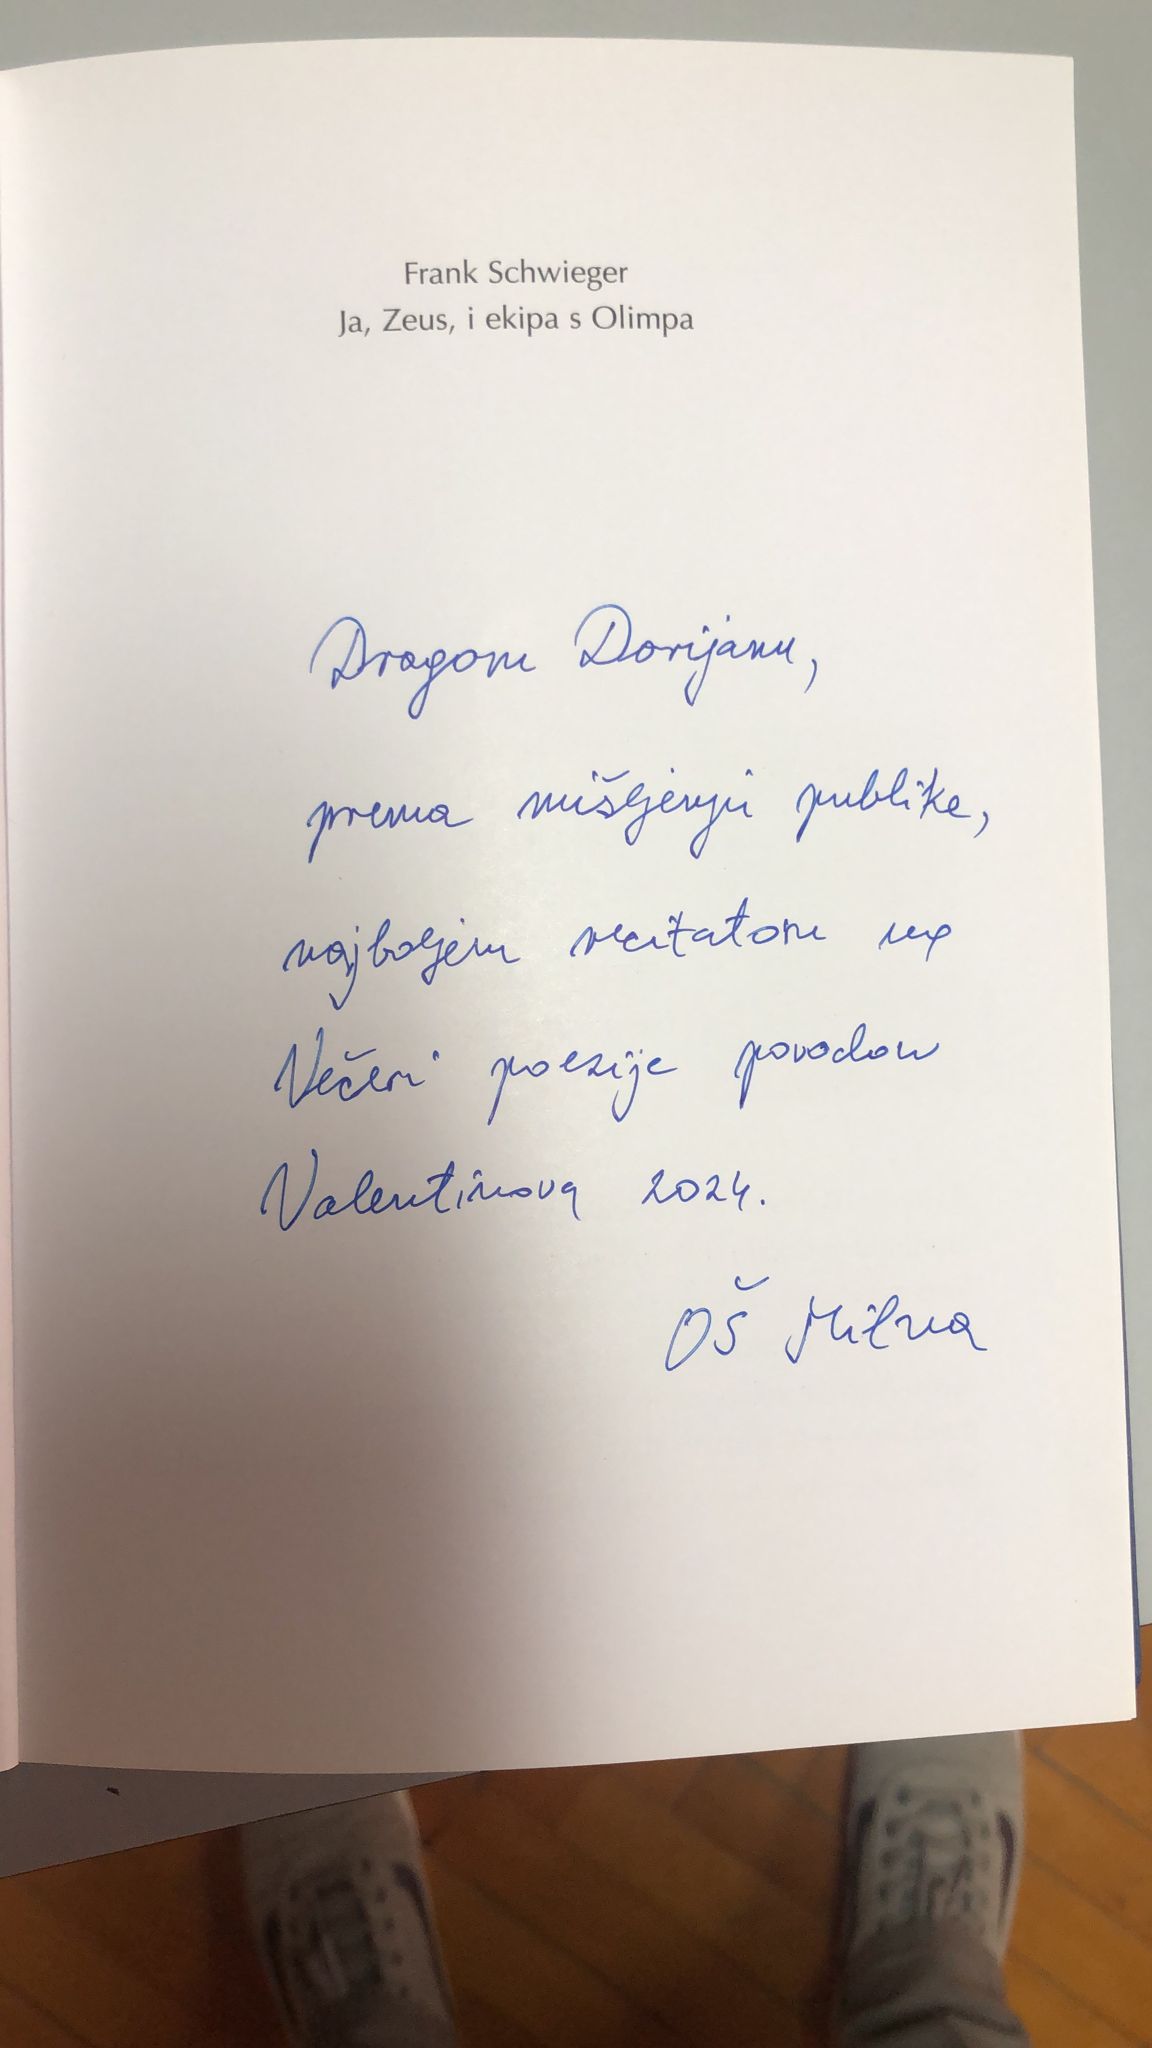 Frank Schwieger
Ja, Zeus, i ekipa s Olimpa
Dragom Dorijanu,
prema mišljenju publike,
najboljem recitatoru na
Večeri poezije povodom
Valentinova 2024.
OŠ Milna